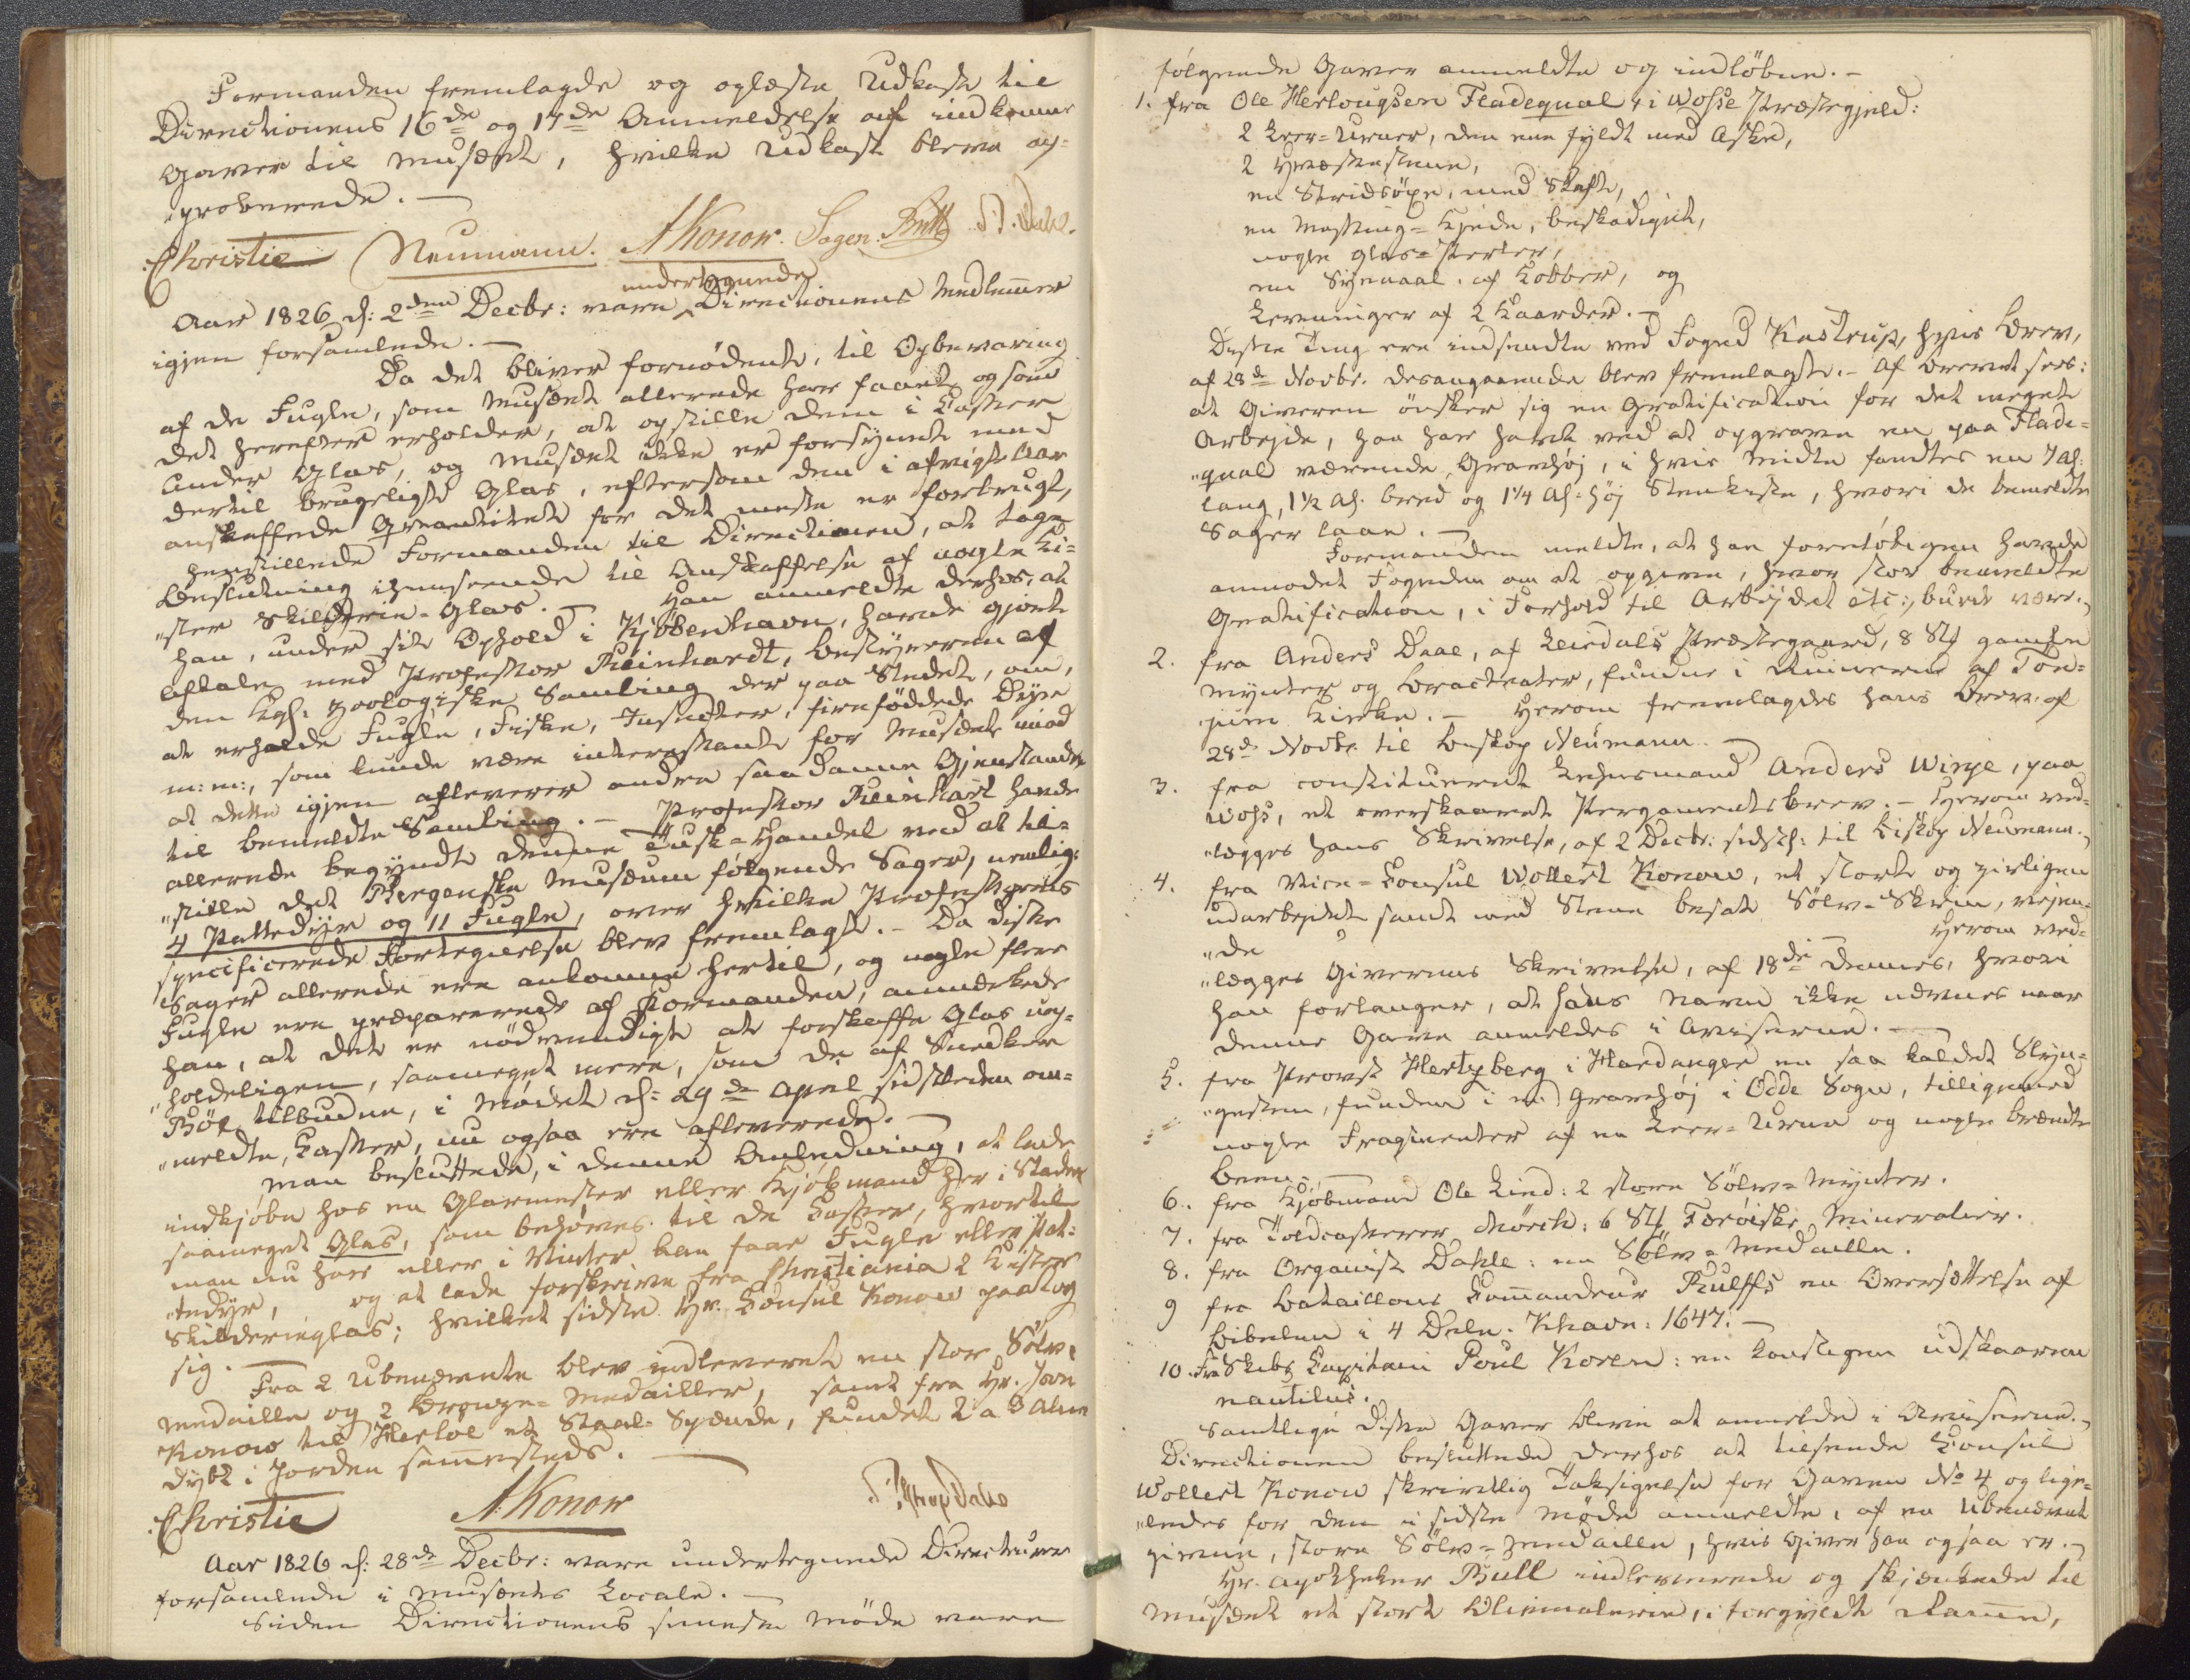 Formanden fremlagde og oplæste Udkast til
Directionens 16de og 17de Anmeldelse af indkomne
Gaver til Musæet, hvilke Udkast bleve ap-
"proberede. —
Christie Neumann. A Konow. Sagen. Bull
undertegnede
Aar 1826 d: 2den Decbr: vare Directionens Medlemmer
igjen forsamlede. —
Da det bliver fornödent, til Opbevaring
af de Fugle, som Musæet allerede har faaet og som
det herefter erholder, at opstille dem i Casser
under Glas, og Musæet ikke er forsynet med
dertil brugeligt Glas, eftersom den i afvigte Aar
anskaffede Qvantitet for det meste er forbrugt,
henstillede Formanden til Directionen, at tage
Beslutning ihenseende til Anskaffelse af nogle Ki-
"ster Skilderie-Glas. — Han anmeldte derhos, at
han, under sit Ophold i Kjöbenhavn, havde gjort
Aftale med Professor Reinhardt, Bestyreren af
den Kgl: zoologiske Samling der paa Stedet, om,
at erholde Fugle, Fiske, Insecter, fireföddede Dyr
m: m:, som kunde være interessante for Musæet mod
at dette igjen afleverer andre saadanne Gjenstande
til bemeldte Samling. — Professor Reinhart havde
allerede begyndt denne Tusk-Handel ved at til-
"stille det Bergenske Musæum fölgende Sager, nemlig:
4 Pattedyr og 11 Fugle, over hvilke Professorens
specificerede Fortegnelse blev fremlagt. — Da disse
Sager allerede ere ankomne hertil, og nogle flere
Fugle ere præparerede af Formanden, anmærkede
han, at det er nödvendigt at forskaffe Glas uop-
"holdeligen, saameget mere, som de af Snedker
Böe tilbudne, i Mödet d: 29de April sidstleden om-
"meldte, Casser, nu ogsaa ere afleverede. —
Man besluttede, i denne Anledning, at lade
indkjöbe hos en Glarmester eller Kjöbmand her i Staden
saameget Glas, som behöves til de Casser, hvortil
man nu har eller i Vinter kan faae Fugle eller Pat-
"tedyr, og at lade forskrive fra Christiania 2 Kister
Skilderieglas; hvilket sidste Hr. Consul Konow paatog
sig. —
Fra 2 Ubenævnte blev indleveret en stor Sölv-
Medaille og 2 Bronze-Medailler, samt fra Hr. Jon
Konow til Herloe et Staal-Spænde, fundet 2 a 3 Alen
dybt i Jorden sammesteds. —
Christie A. Konow
Aar 1826 d: 28de Decbr: vare undertegnede Directeurer
forsamlede i Musæets Locale. —
Siden Directionens seneste Möde vare
fölgende Gaver anmeldte og indlöbne. —
1. fra Ole Herlougsen Fladequal i Wosse Præstegjeld:
2 Leer-Urner, den ene fyldt med Aske,
2 Hvæssestene,
en Stridsöxe, med Skaft,
en Messing-Kjede, beskadiget,
nogle Glas-Perler,
en Synaal af Kobber, og
Levninger af 2 Kaarder. —
Disse Ting ere indsendte ved Foged Kastrup, hvis Brev,
af 28de Novbr. desangaaende blev fremlagt. — Af Brevet sees:
at Giveren önsker sig en Gratification for det meget
Arbejde, han har havt ved at opgrave en paa Flade-
"qual værende Gravhöj, i hvis Midte fandtes en 7 Al:
lang, 1½ Al. bred og 1¼ Al: höj Steenkiste, hvori de bemeldte
Sager laae. —
Formanden meldte, at han foreløbigen havde
anmodet Fogden om at opgive, hvor stor bemeldte
Gratification, i Forhold til Arbejdet etc:, burde være. —
2. fra Anders Daae, af Leirdals Præstegaard, 8 St gamle
Mynter og Bracteater, fundne i Ruinerne af Ton-
jum Kirke. — Herom fremlagdes hans Brev af
28de Novbr. til Biskop Neumann. —
3. fra constitueret Lehnsmand Anders Winje, paa
Woss, et overskaaret Pergamentsbrev. — Herom ved-
"lægges hans Skrivelse, af 2 Decbr: sidstl: til Biskop Neumann. —
4. fra Vice-Consul Wollert Konow, et stort og zirligen
udarbejdet samt med Stene besat Sölv-Skrin, vejen-
"de Herom ved-
"lægges Giverens Skrivelse, af 18de dennes, hvori
han forlanger, at hans Navn ikke nævnes naar
denne Gave anmeldes i Aviserne. —
5. fra Provst Hertzberg i Hardanger en saa kaldet Slyn-
"gesteen, funden i en Gravhöj i Odde Sogn, tilligemed
nogle Fragmenter af en Leer-Urne og nogle brændte
Been. —
6. fra Kjöbmand Ole Lind: 2 store Sölv-Mynter.
7. fra Toldcasserer Mörch: 6 St Færöiske Mineralier.
8. fra Organist Dahle: en Sölv-Medaille.
9 fra Bataillons Commandeur Rulffs en Oversættelse af
Bibelen i 4 Dele. Khavn: 1647. —
10. Fra Skibs Capitain Poul Koren: en konstigen udskaaren
nautilus.
Samtlige disse Gaver blive at anmelde i Aviserne. —
Directionen besluttede derhos at tilsende Consul
Wollert Konow skriftlig Taksigelse for Gaven No 4 og lige-
"ledes for den i sidste Möde anmeldte, af en Ubenævnt
givne, store Sölv-Medaille, hvis Giver han ogsaa er. —
Hr. Apotheker Bull indleverede og skjænkede til
Musæet et stort Oliemalerie, i forgyldt Ramme,